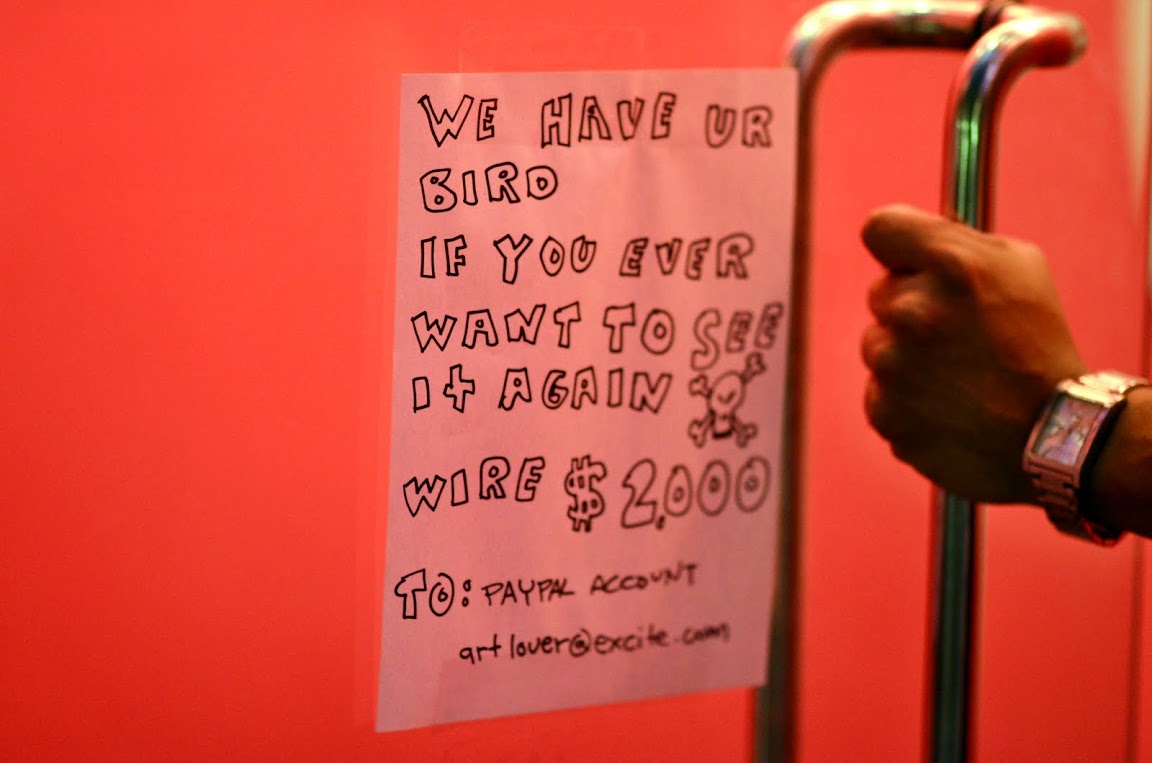 WE HAVE UR
BIRD
IF YOU EVER
WANT TO SEE
It AGAIN
WIRE $2,000
TO: PAYPAL ACCOUNT
artlover@excite.com